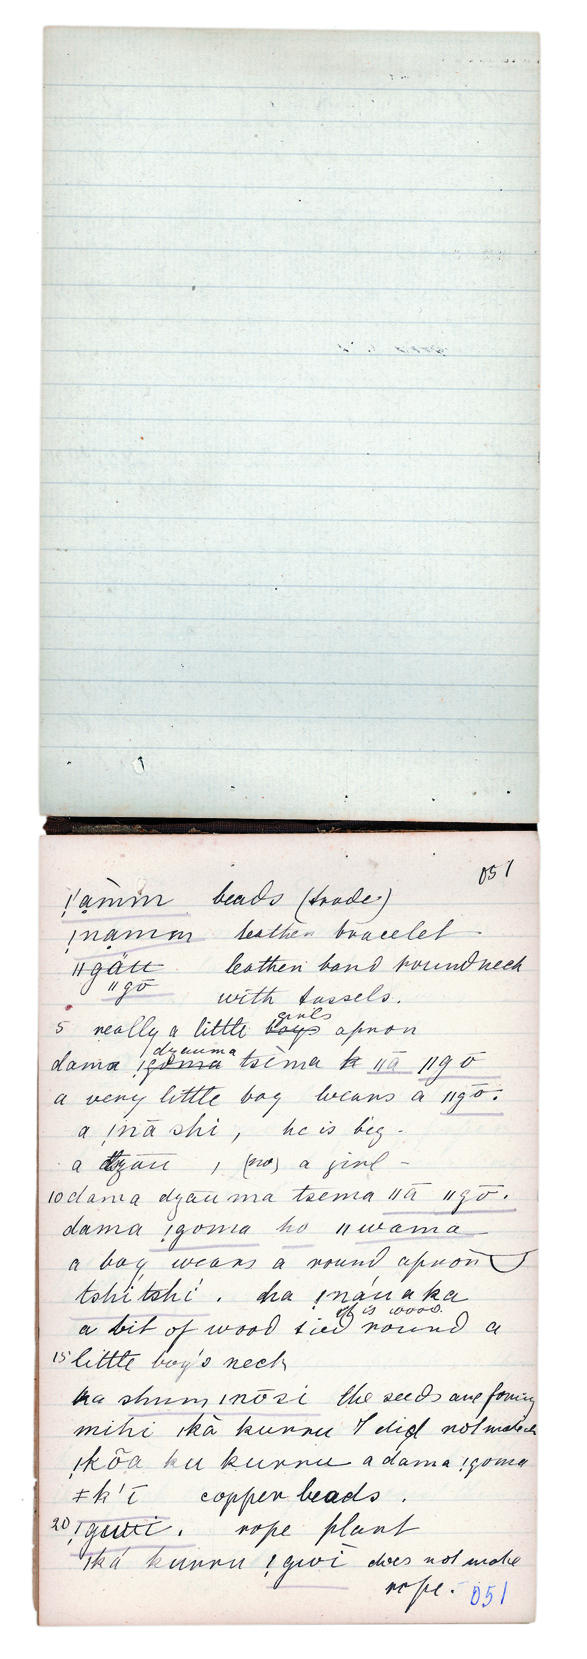 051
ǃʼa̱mm beads (trade)
ǃna̱mm leather bracelet
ǁgáu leather band round neck
ǁgō with tassels.
5 really a little boys girls apron
dama ǃgoma dzauma tsema k ǁā ǁgō
a very little boy wears a ǁgō.
a ǃnā shi, he is big -
a dzāu, (no) a girl -
10 dama dzāuma tsema ǁā ǁgō.
dama ǃgoma ho ǁwama
a boy wears a round apron
tshitshi. ha ǃnáuaka
it is wood.
a bit of wood tied round a
15 little boy's neck
ha shum ǀnōsi the seeds are
mihi ǀkā kurru I did not make
ǃkōa ku kurru a dama ǃgoma
ǂk'ī copper beads.
20 ǃguii. rope plant
ǀká kurru ǃgwī does not make
rope. 051